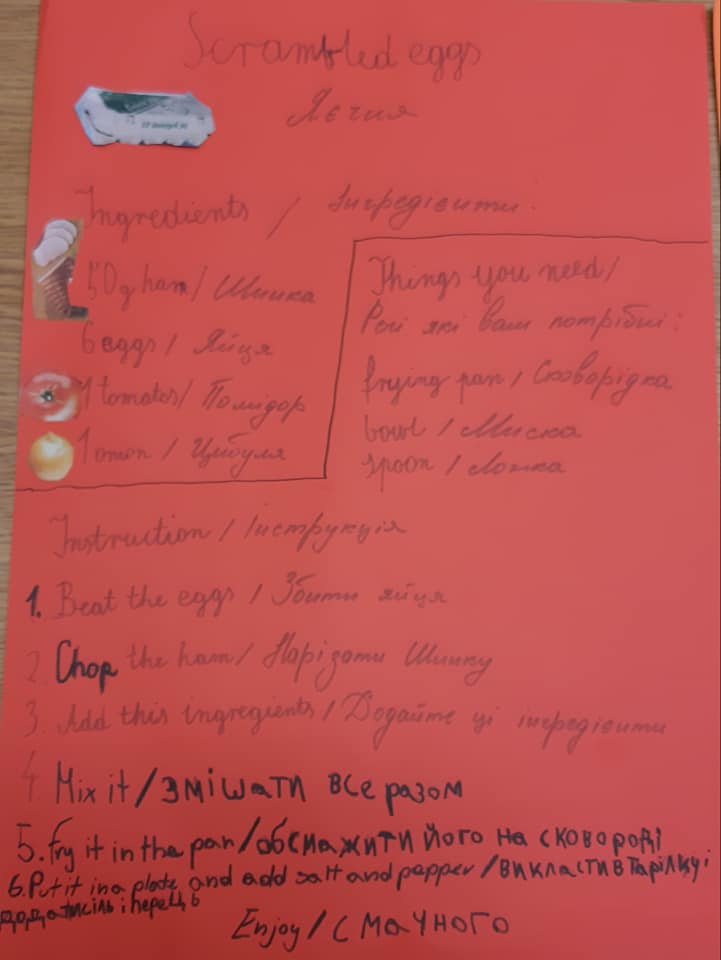 Scrambled eggs
Яєчня
Ingredients / Інгредієнти:
50g ham / Шинка
6 eggs / Яйця
1 tomatoes / Помідор
1 onion / Цибуля
Things you need /
Речі які вам потрібні:
frying pan / Сковорідка
bowl / Миска
spoon / Ложка
Instruction / Інструкція
1. Beat the eggs / Збити яйця
2. Chop the ham / Нарізати Шинку
3. Add this ingregients / Додайте ці інгредієнти
4 Mix it / ЗМІШАТИ ВСЕ РАЗОМ
5. Fry it in the pan / обсмажити його на сковороді
6. Put it in a plate and add salt and papper / викласти в тарілку і
додати сіль і перець
Enjoy / СМАЧНОГО